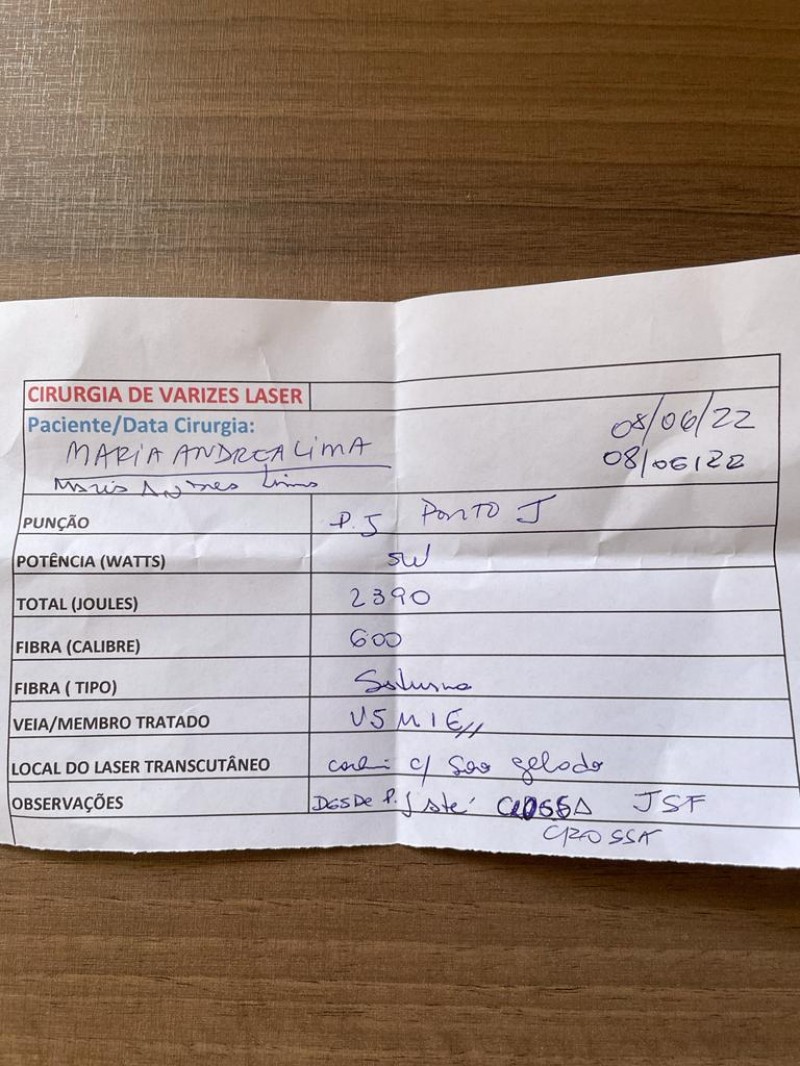 CIRURGIA DE VARIZES LASER
Paciente/Data Cirurgia:
MARIA ANDREA LIMA 08/06/22
Maria Andrea Lima 08/06/22
PUNÇÃO P.J PONTO J
POTÊNCIA (WATTS) 5W
TOTAL (JOULES) 2390
FIBRA (CALIBRE) 600
FIBRA ( TIPO)
VEIA/MEMBRO TRATADO VSMIE//
LOCAL DO LASER TRANSCUTÂNEO c/ Soro gelado
OBSERVAÇÕES DESDE P.J até CROSSA JSF
CROSSA